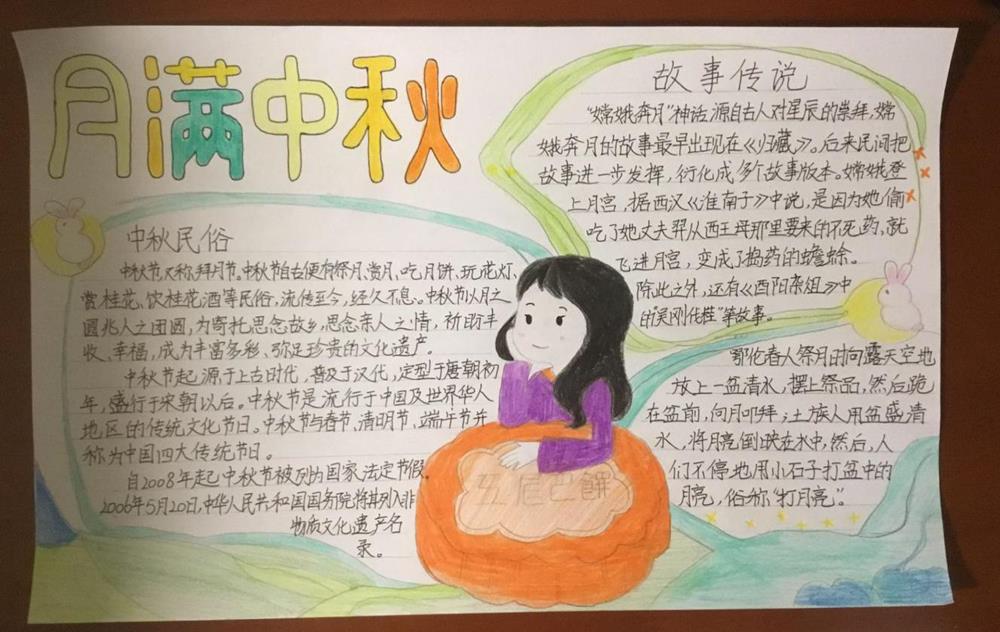 月满中秋
中秋民俗
中秋节,又称拜月节,中秋节自古便有祭月、赏月、吃月饼、玩花灯、
赏桂花、饮桂花酒等民俗,流传至今,经久不息。中秋节以月之
圆兆人之团圆,为寄托思念故乡,思念亲人之情,祈盼丰
收、幸福,成为丰富多彩、弥足珍贵的文化遗产。
中秋节起源于上古时代,普及于汉代,定型于唐朝初
年,盛行于宋朝以后。中秋节是流行于中国及世界华人
地区的传统文化节日。中秋节与春节、清明节、端午节并
称为中国四大传统节日。
自2008年起中秋节被列为国家法定节假。
2006年5月20日,中华人民共和国国务院将其列入非
物质文化遗产名
录。
故事传说
"嫦娥奔月"神话源自古人对星辰的崇拜,嫦
娥奔月的故事最早出现在《归藏》。后来民间把
故事进一步发挥,衍化成多个故事版本。嫦娥登
上月宫,据西汉《淮南子》中说,是因为她偷
吃了她丈夫羿从西王母那里要来的不死药,就
飞进月宫,变成了捣药的蟾蜍。
除此之外,还有《酉阳杂俎》中
的"吴刚伐桂"等故事。
鄂伦春人祭月时向露天空地
放上一盆清水,摆上祭品,然后跪
在盆前,向月叩拜,土族人用盆盛清
水,将月亮倒映在水中,然后,人
们不停地用小石子打盆中的
月亮,俗称"打月亮"。
五仁巴餅